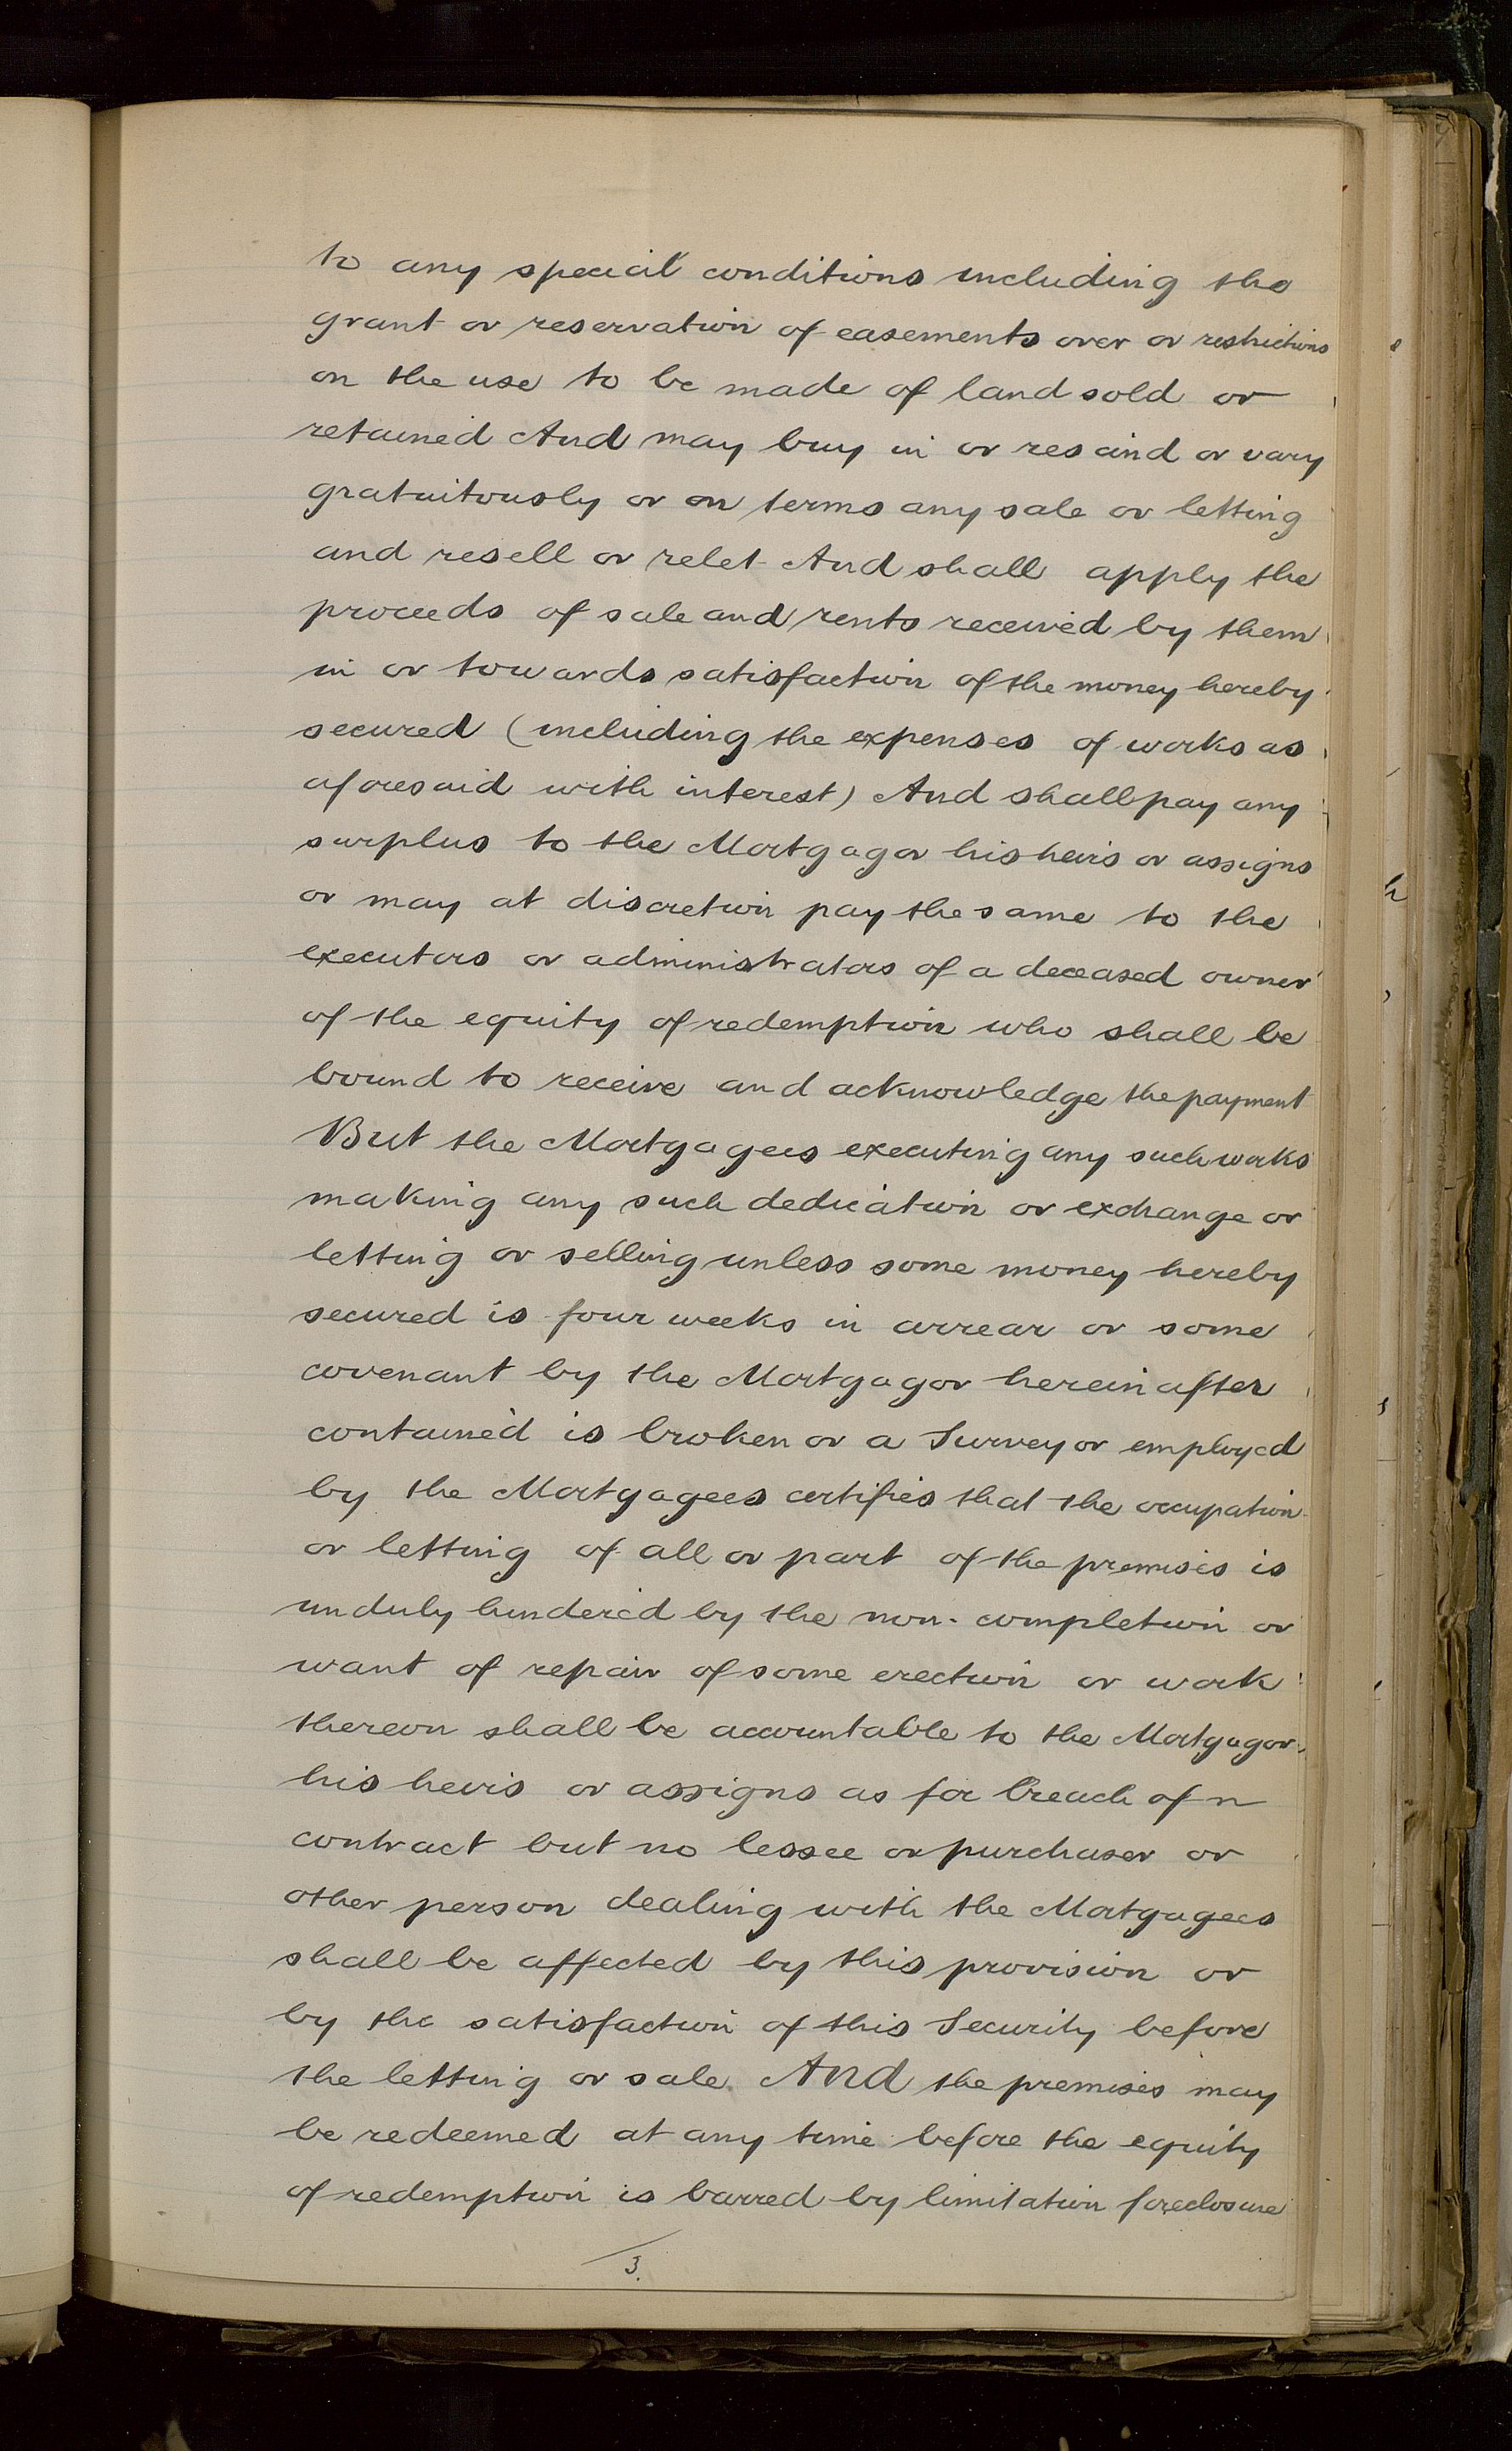 to any special conditions including the
grant or reservation of easements over or restrictions
on the use to be made of land sold or
retained And may buy in or rescind or vary
gratuitously or on terms any sale or letting
and resell or relet And shall apply the
proceeds of sale and rents received by them
in or towards satisfaction of the money hereby
secured (including the expenses of works as
aforesaid with interest) And shall pay any
surplus to the Mortgagor his heirs or assigns
or may at discretion pay the same to the
executors or administrators of a deceased owner
of the equity of redemption who shall be
bound to receive and acknowledge the payment
But the Mortgagees executing any such works
making any such dedication or exchange or
letting or selling unless some money hereby
secured is four weeks in arrear or some
covenant by the Mortgagor hereinafter
contained is broken or a Surveyor employed
by the Mortgagees certifies that the occupation
or letting of all or part of the premises is
unduly hindered by the non-completion or
want of repair of some erection or work
thereon shall be accountable to the Mortgagor
his heirs or assigns as for breach of
contract but no lessee or purchaser or
other person dealing with the Mortgagees
shall be affected by this provision or
by the satisfaction of this Security before
the letting or sale. And the premises may
be redeemed at any time before the equity
of redemption is barred by limitation foreclosure
3.